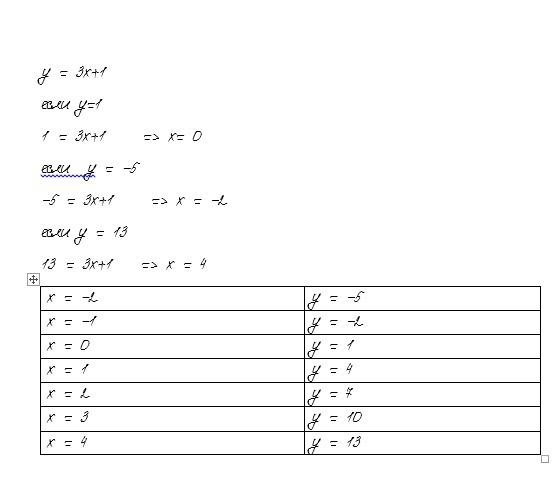 y = 3x+1
если y=1
1 = 3x+1 => x= 0
если y = -5
-5 = 3x+1 => x = -2
если y = 13
13 = 3x+1 => x = 4
x = -2 y = -5
x = -1 y = -2
x = 0 y = 1
x = 1 y = 4
x = 2 y = 7
x = 3 y = 10
x = 4 y = 13